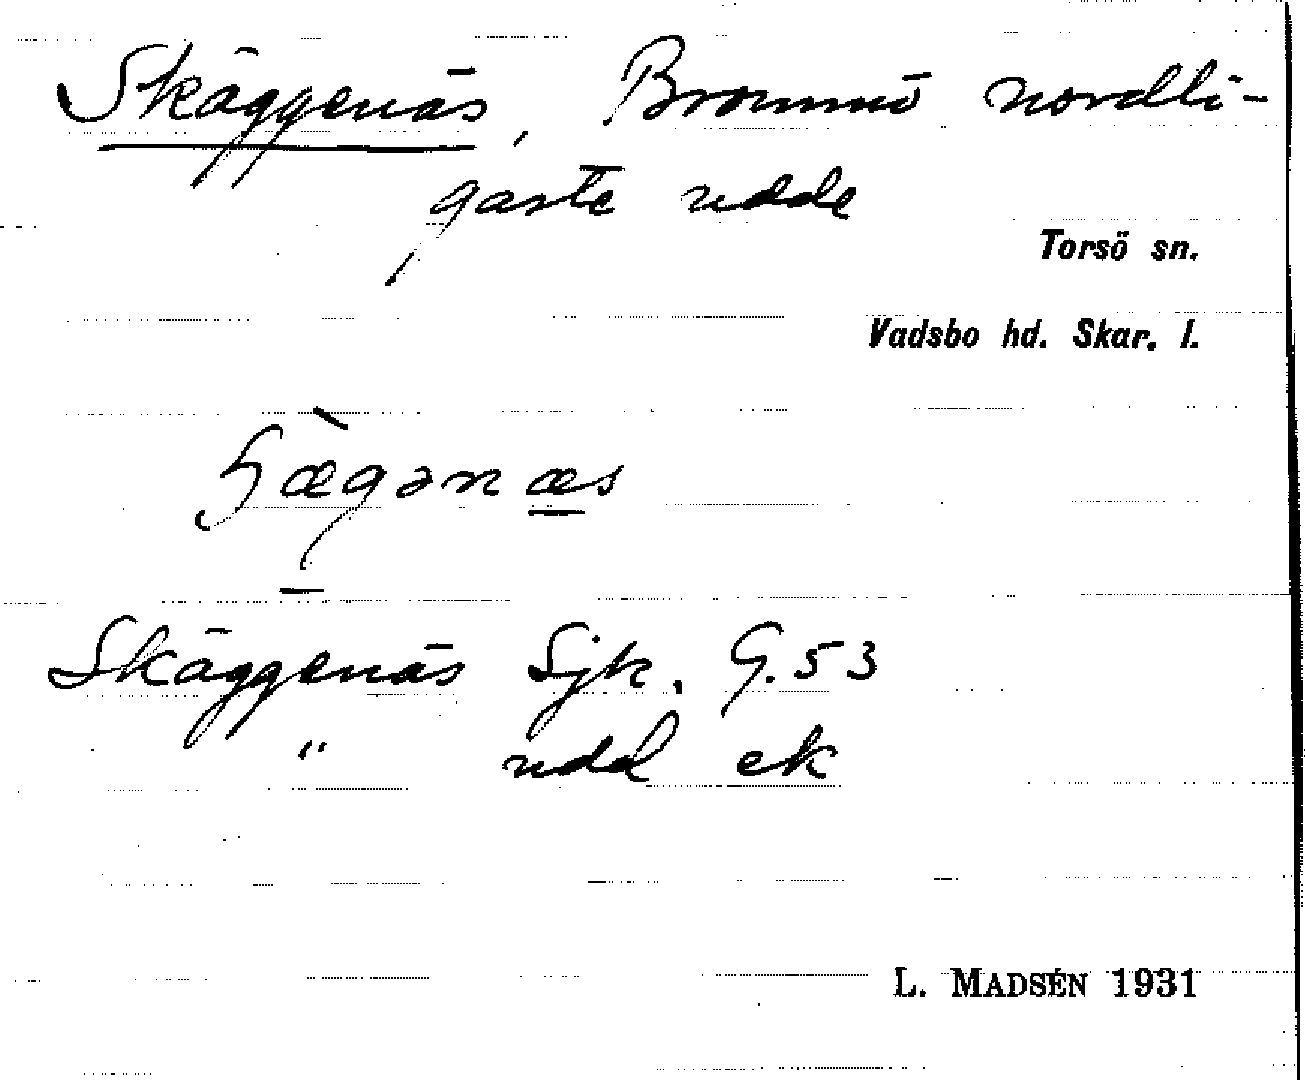 Skäggenäs, Brommö nordli-
gaste udde
Torsö sn.
Vadsbo hd. Skar. l.
ʃæ̀gənæs
Skäggenäs Sjk. G.53
" udd ek
L. MADSÉN 1931